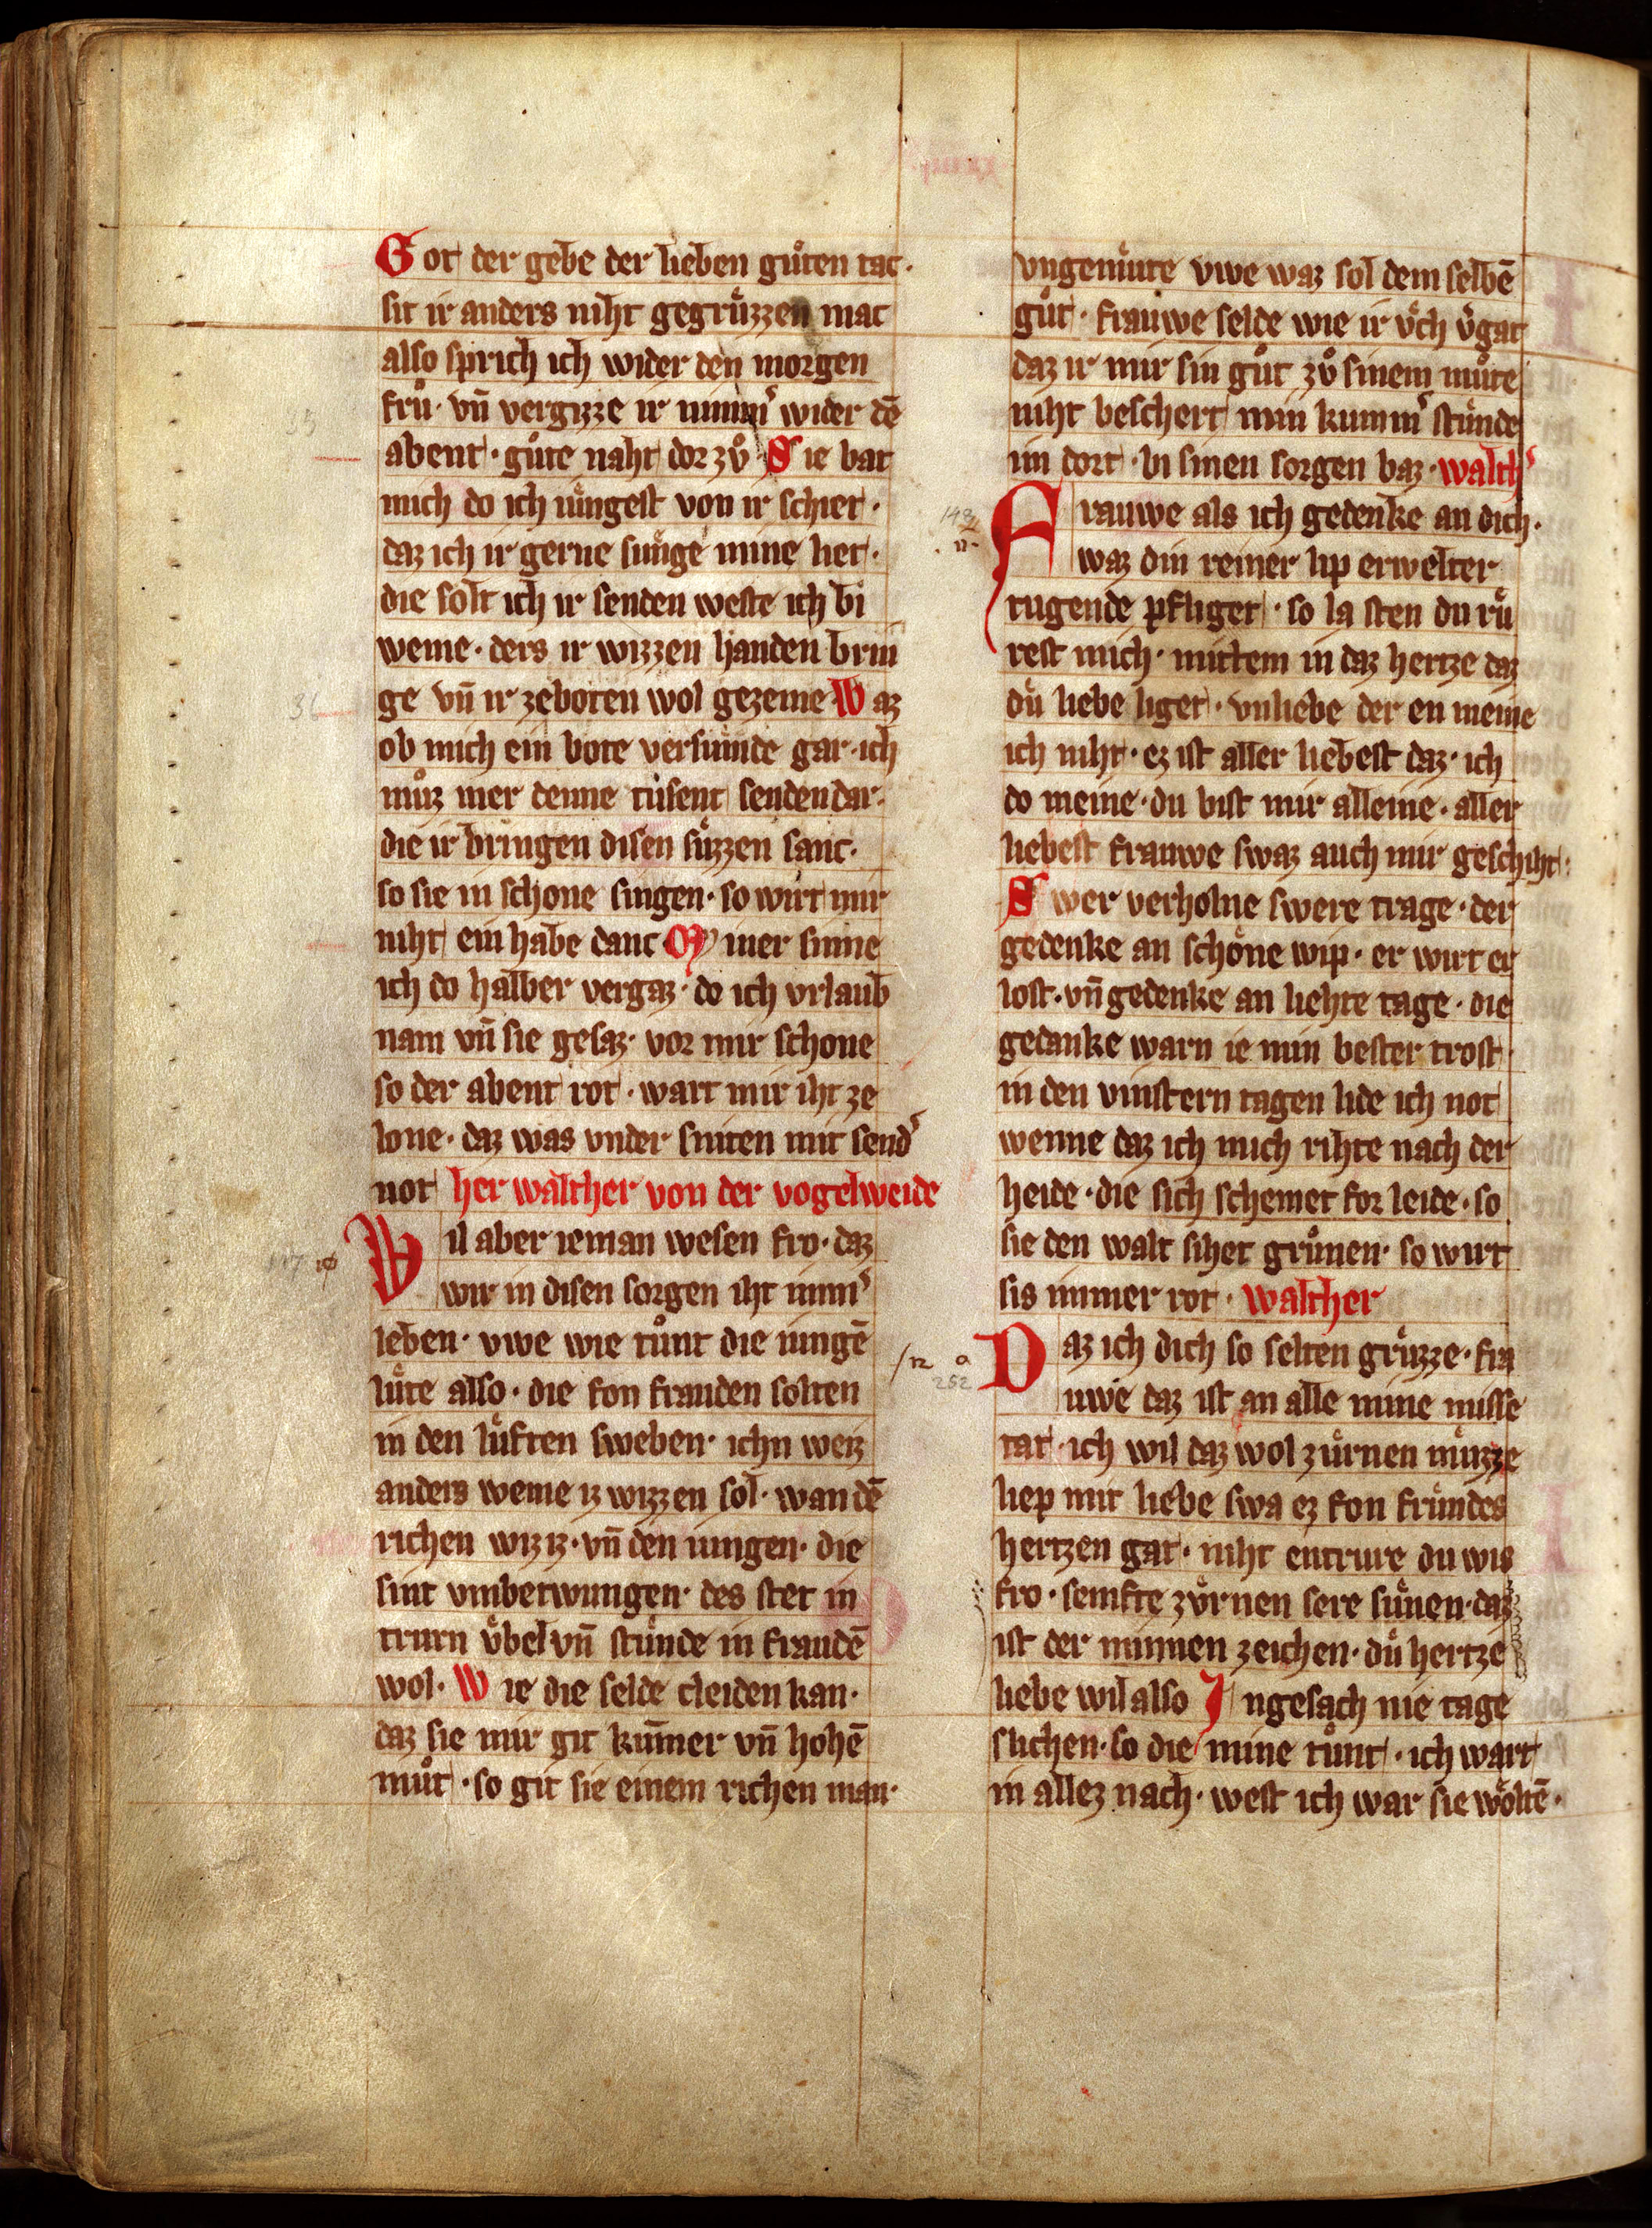 Got der gebe der lieben guͦten tac·
sit ir anders niht gegruͤzzen mac
also sprich ich wider den morgen
fruͦ· vn̄ vergizze ir nimm͛ wider dē
abent· guͦte naht dor zuͦ· Sie bat
mich do ich iuͤngest von ir schiet·
daz ich ir gerne suͤnge mine liet·
die solt ich ir senden weste ich bi
weme· ders ir wizzen handen brin
ge vn̄ ir zeboten wol gezeme· Waz
ob mich ein bote versuͤmde gar· ich
muͦz mer denne tusent senden dar·
die ir bringen disen suͤzzen sanc·
so sie in schone singen· so wirt mir
niht ein habe danc· Miner sinne
ich do halber vergaz· do ich vrlaub
nam vn̄ sie gesaz· vor mir schone
so der abent rot· wart mir iht ze
lone· daz was vnder sniten mit send͛
not her walther von der vogelweide
Wil aber ieman wesen fro· daz
wir in disen sorgen iht imm͛
leben· vwe wie tuͦnt die iungē
luͤte also· die fon frauden solten
in den luͤften sweben· ichn weiz
anders weme iz wizzen sol· wan dē
richen wiz iz· vn̄ den iungen· die
sint vmbetwungen· des stet in
trurn vͤbel vn̄ stuͤnde in fraudē
wol· Wie die selde cleiden kan·
daz sie mir git kum̄er vn̄ hohē
muͦt· so git sie einem richen man·
vngemuͤte vwe waz sol dem selbē
guͦt· frauwe selde wie ir vͤch v͛gat
daz ir mir sin guͦt zuͦ sinem muͦte
niht beschert min kumm͛ stuͤnde
im dort· bi sinen sorgen baz· walth͛
Frauwe als ich gedenke an dich·
waz din reiner lip erwelter
tugende pfliget· so la sten du ruͤ
rest mich· mittem in daz hertze daz
duͤ liebe liget· vnliebe der en meine
ich niht· ez ist aller liebest daz· ich
do meine· du bist mir alleine· aller
liebest frauwe swaz auch mir geschiht·
Swer verholne swere trage· der
gedenke an schoͤne wip· er wirt er
lost· vn̄ gedenke an liehte tage· die
gedanke warn ie min bester trost·
in den vinstern tagen lide ich not
wenne daz ich mich rihte nach der
heide· die sich schemet for leide· so
sie den walt sihet gruͤnen· so wirt
sis immer rot· walther
Daz ich dich so selten gruͤzze· fra
uwe daz ist an alle mine misse
tat· ich wil daz wol zuͤrnen muͤzze
liep mit liebe swa ez fon fruͤndes
hertzen gat· niht entrure du wis
fro· semfte zvͤrnen sere suͤnen· daz
ist der minnen zeichen· duͤ hertze
liebe wil also Ingesach nie tage
slichen· so die mine tuͦnt· ich wart
in allez nach· west ich war sie woͤltē·